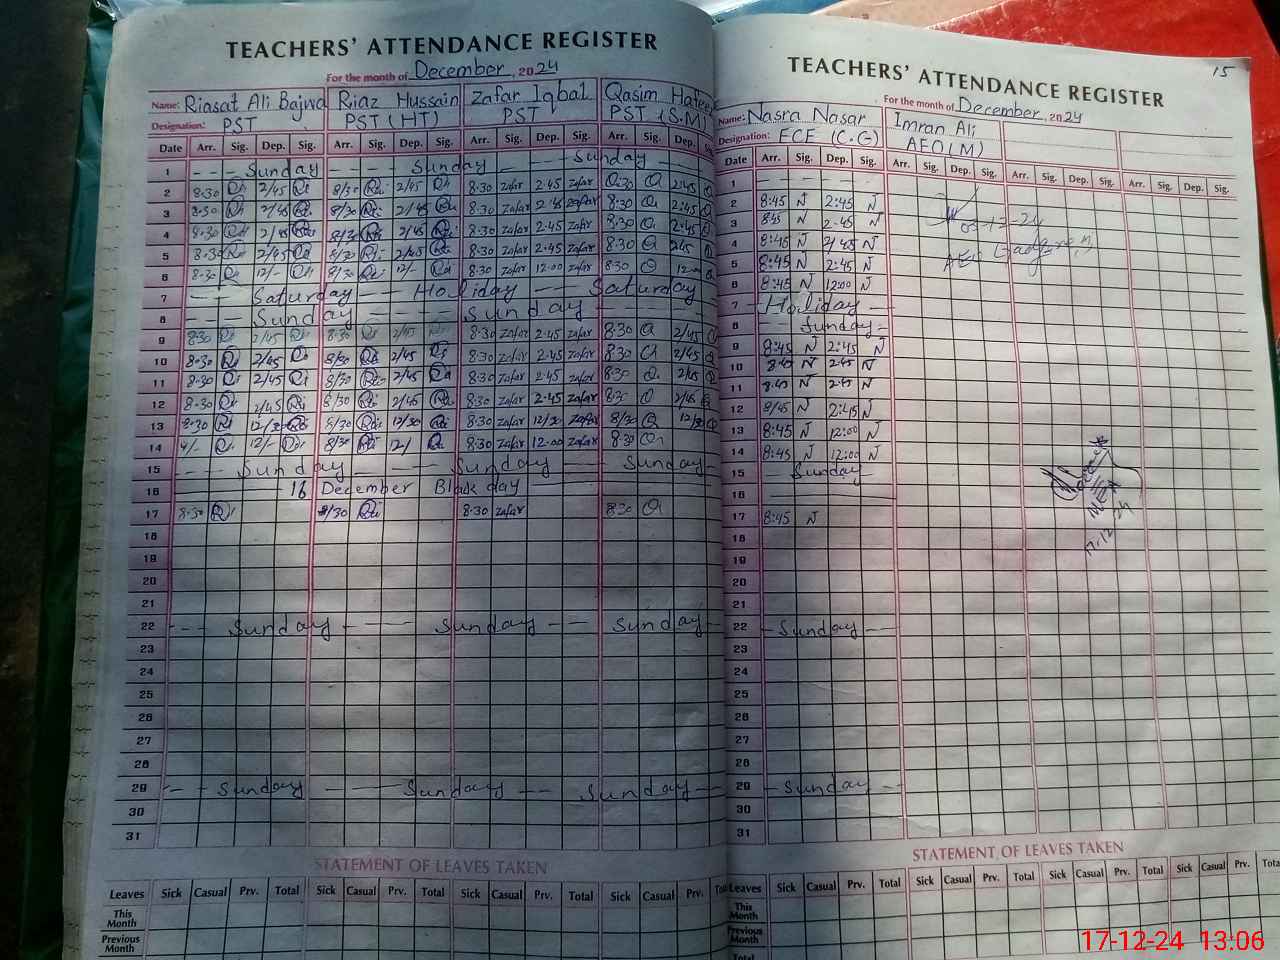 TEACHERS' ATTENDANCE REGISTER
For the month of December, 2024
Name: Riasat Ali Bajwa Riaz Hussain Zafar Iqbal Qasim Hafeez
Designation: PST PST (HT) PST PST (S.M)
Date Arr. Sig. Dep. Sig. Arr. Sig. Dep. Sig. Arr. Sig. Dep. Sig. Arr. Sig. Dep. Sig.
1 Sunday Sunday Sunday
2 8:30 2/45 8/30 2/45 8:30 zafar 2:45 zafar 8:30 2:45
3 8:30 2/45 8/30 2/45 8:30 zafar 2:45 zafar 8:30 2:45
4 8:30 2/45 8/30 2/45 8:30 zafar 2:45 zafar 8:30 2:45
5 8:30 2/45 8/30 2/45 8:30 zafar 2:45 zafar 8:30 2:45
6 8:30 12/- 8/30 12/- 8:30 zafar 12:00 zafar 8:30
7 Saturday Holiday Saturday
8 Sunday Sunday
9 8:30 2/45 8:30 2/45 8:30 zafar 2:45 zafar 8:30 2/45
10 8:30 2/45 8/30 2/45 8:30 zafar 2:45 zafar 8:30 2/45
11 8:30 2/45 8/30 2/45 8:30 zafar 2:45 zafar 8:30 2/45
12 8:30 2/45 8/30 2/45 8:30 zafar 2:45 zafar 8:30 2/45
13 8:30 12/30 8/30 12/30 8:30 zafar 12/30 zafar 8/30 12/30
14 12/- 8/30 12/ 8:30 zafar 12:00 zafar 8:30
15 Sunday Sunday Sunday
16 16 December Black day
17 8:30 8/30 8:30 zafar 8:30
18
19
20
21
22 Sunday Sunday Sunday
23
24
25
26
27
28
29 Sunday Sunday Sunday
30
31
STATEMENT OF LEAVES TAKEN
Leaves Sick Casual Prv. Total Sick Casual Prv. Total Sick Casual Prv. Total Sick Casual Prv.
This Month
Previous Month
15
TEACHERS' ATTENDANCE REGISTER
For the month of December, 2024
Name: Nasra Nasar Imran Ali
Designation: ECE (C.G) AEO (M)
Date Arr. Sig. Dep. Sig. Arr. Sig. Dep. Sig. Arr. Sig. Dep. Sig. Arr. Sig. Dep. Sig.
1
2 8:45 N 2:45 N
3 8:45 N 2:45 N
4 8:45 N 2/45 N
5 8:45 N 2:45 N
6 8:45 N 12:00 N
7 Holiday
8 Sunday
9 8:45 N 2:45 N
10 8:45 N 2:45 N
11 8:45 N 2:45 N
12 8/45 N 2:45 N
13 8:45 N 12:00 N
14 8:45 N 12:00 N
15 Sunday
16
17 8:45 N
MEA
17.12.24
18
19
20
21
22 Sunday
23
24
25
26
27
28
29 Sunday
30
31
STATEMENT OF LEAVES TAKEN
Leaves Sick Casual Prv. Total Sick Casual Prv. Total Sick Casual Prv. Total Sick Casual Prv. Total
This Month
Previous Month
Total
17-12-24 13:06